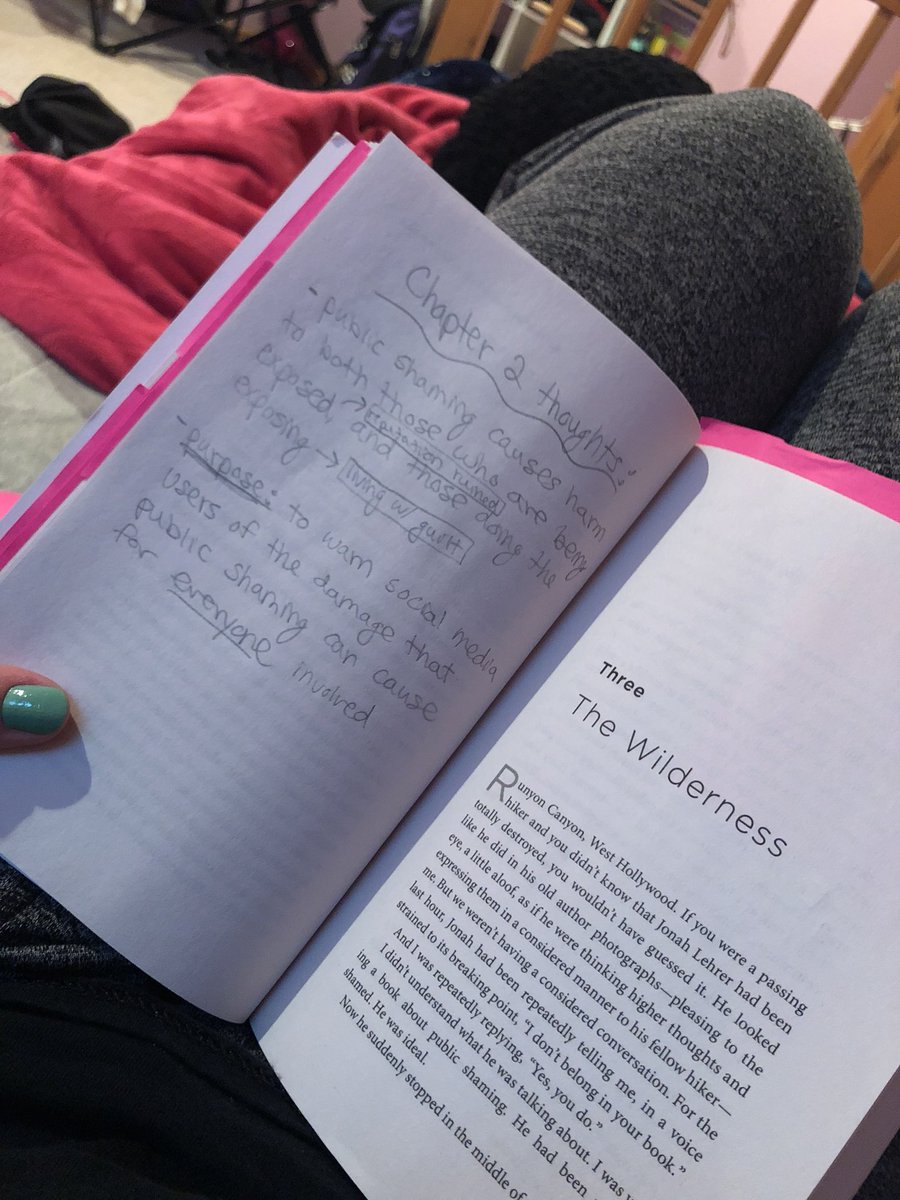 Chapter 2 thoughts:
- public shaming causes harm
to both those who are being
exposed, → reputation ruined
and those doing the
exposing → living w/ guilt
- purpose: to warn social media
users of the damage that
public shaming can cause
for everyone involved
Three
The Wilderness
Runyon Canyon, West Hollywood. If you were a passing
hiker and you didn't know that Jonah Lehrer had been
totally destroyed, you wouldn't have guessed it. He looked
like he did in his old author photographs—pleasing to the
eye, a little aloof, as if he were thinking higher thoughts and
expressing them in a considered manner to his fellow hiker—
me. But we weren't having a considered conversation. For the
last hour, Jonah had been repeatedly telling me, in a voice
strained to its breaking point, "I don't belong in your book."
And I was repeatedly replying, "Yes, you do."
I didn't understand what he was talking about. I was
ing a book about public shaming. He had been
shamed. He was ideal.
Now he suddenly stopped in the middle of